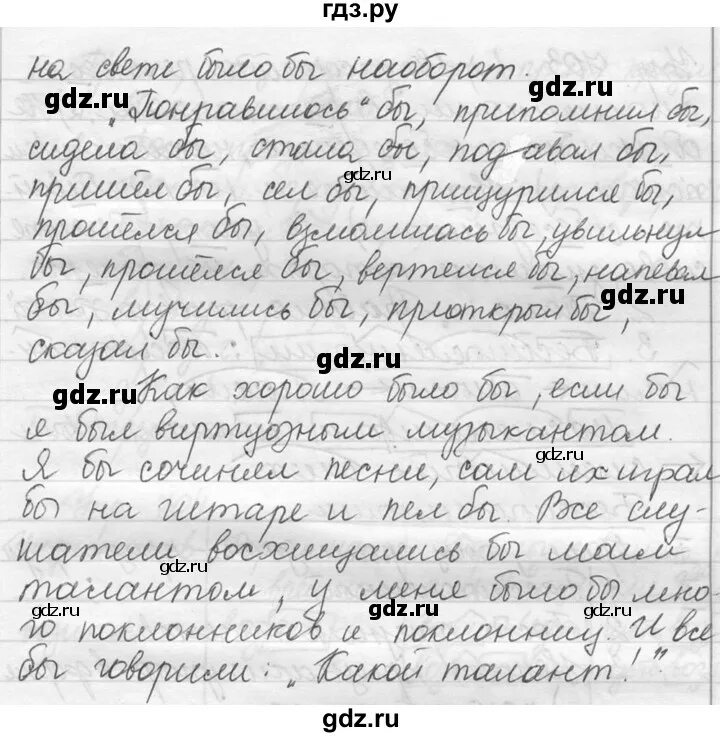 гдз.ру
на свете было бы наоборот.
„Понравилось“ бы, припомнил бы,
сидела бы, стала бы, подавал бы,
пришёл бы, сел бы, прищурился бы,
прошёлся бы, взмолилась бы, увильнул
бы, прошёлся бы, вертелся бы, напевал
бы, мучились бы, приоткрыл бы,
сказал бы.
Как хорошо было бы, если бы
я был виртуозным музыкантом.
Я бы сочинял песни, сам их играл
бы на гитаре и пел бы. Все слу-
шатели восхищались бы моим
талантом, у меня было бы мно-
го поклонников и поклонниц. И все
бы говорили: „Какой талант!“.
gdz.ru
gdz.ru
gdz.ru
gdz.ru
gdz.ru
gdz.ru
gdz.ru
gdz.ru
gdz.ru
gdz.ru
gdz.ru
gdz.ru
gdz.ru